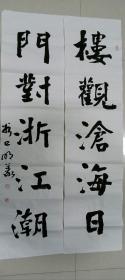 樓觀滄海日
門對浙江潮